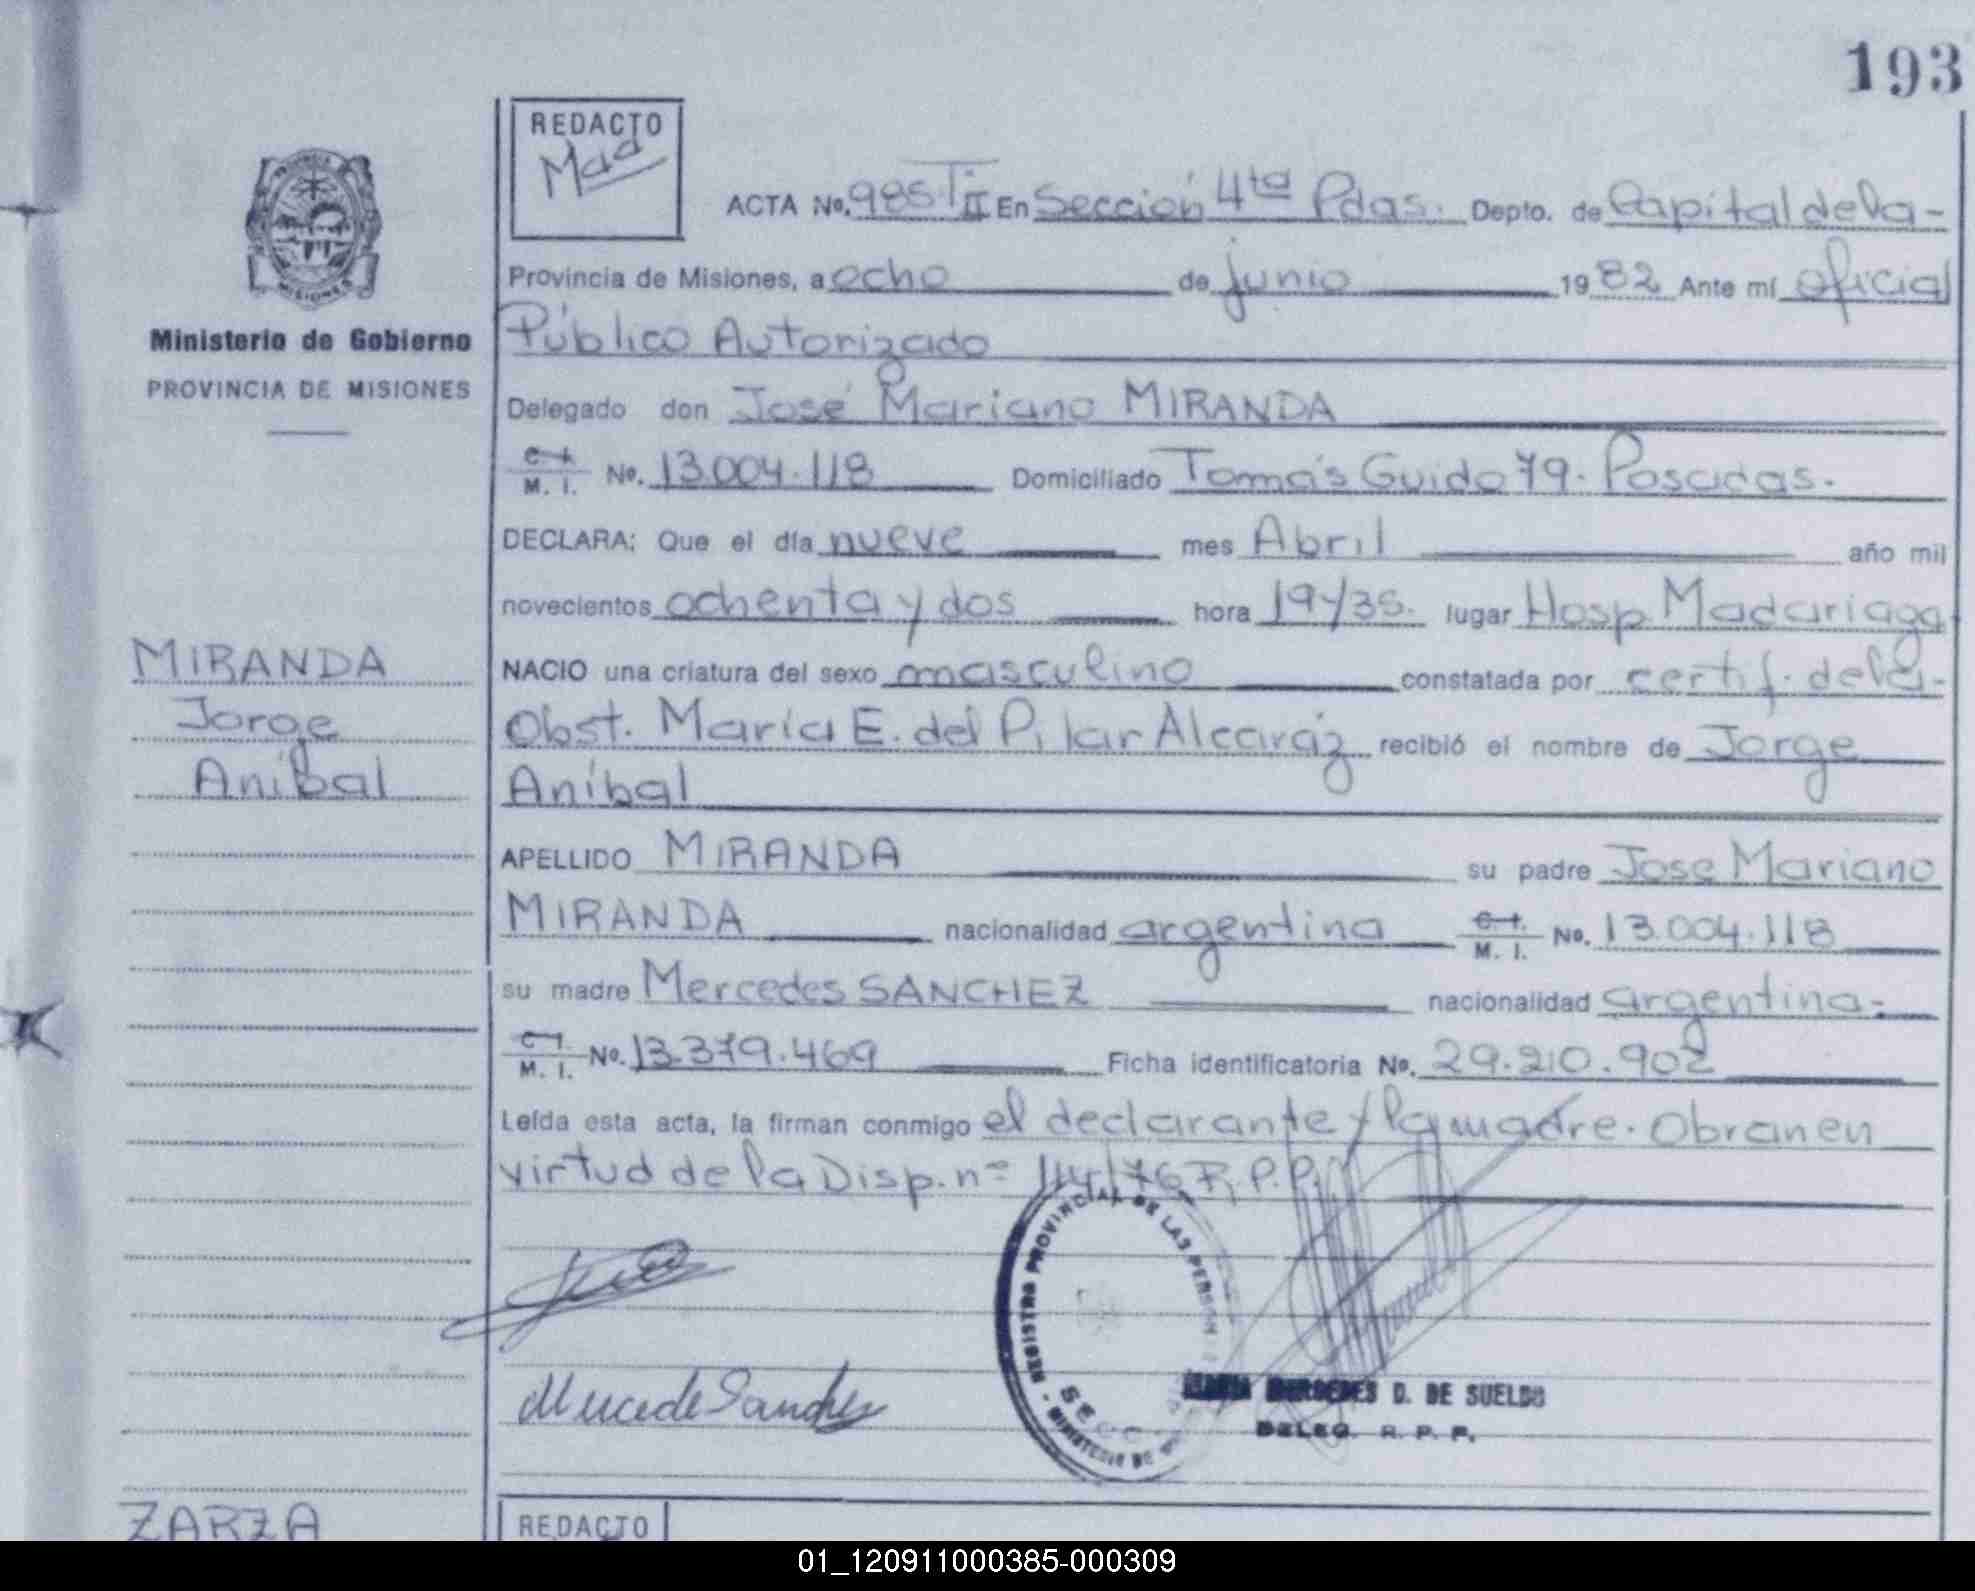 193
REDACTO
ACTA No. 985 T II En Sección 4ta Pdas. Depto. de Capital de la-
Provincia de Misiones, a ocho de junio 1982 Ante mí oficial
Público Autorizado
Delegado don José Mariano MIRANDA
C. I.
M. I. No. 13.004.118 Domiciliado Tomás Guido 79. Posadas.
DECLARA: Que el día nueve mes Abril año mil
novecientos ochenta y dos hora 19/35. lugar Hosp Madariaga
NACIO una criatura del sexo masculino constatada por certif. de la-
Obst. María E. del Pilar Alcaráz recibió el nombre de Jorge
Aníbal
APELLIDO MIRANDA su padre Jose Mariano
MIRANDA nacionalidad argentina C. I.
M. I. No. 13.004.118
su madre Mercedes SANCHEZ nacionalidad argentina-
C. I.
M. I. No. 13.379.469 Ficha identificatoria No. 29.210.902
Leída esta acta, la firman conmigo el declarante y la madre. Obran en
virtud de la Disp. nº 114/76 R.P.P.
PROVINCIA
MISIONES
Ministerio de Gobierno
PROVINCIA DE MISIONES
MIRANDA
Jorge
Aníbal
REGISTRO PROVINCIAL DE LAS PERSON
MINISTERIO DE
Mercede Sanchez
MERCEDES D. DE SUELDO
DELEG. R. P. P.
ZARZA
REDACTO
01_120911000385-000309